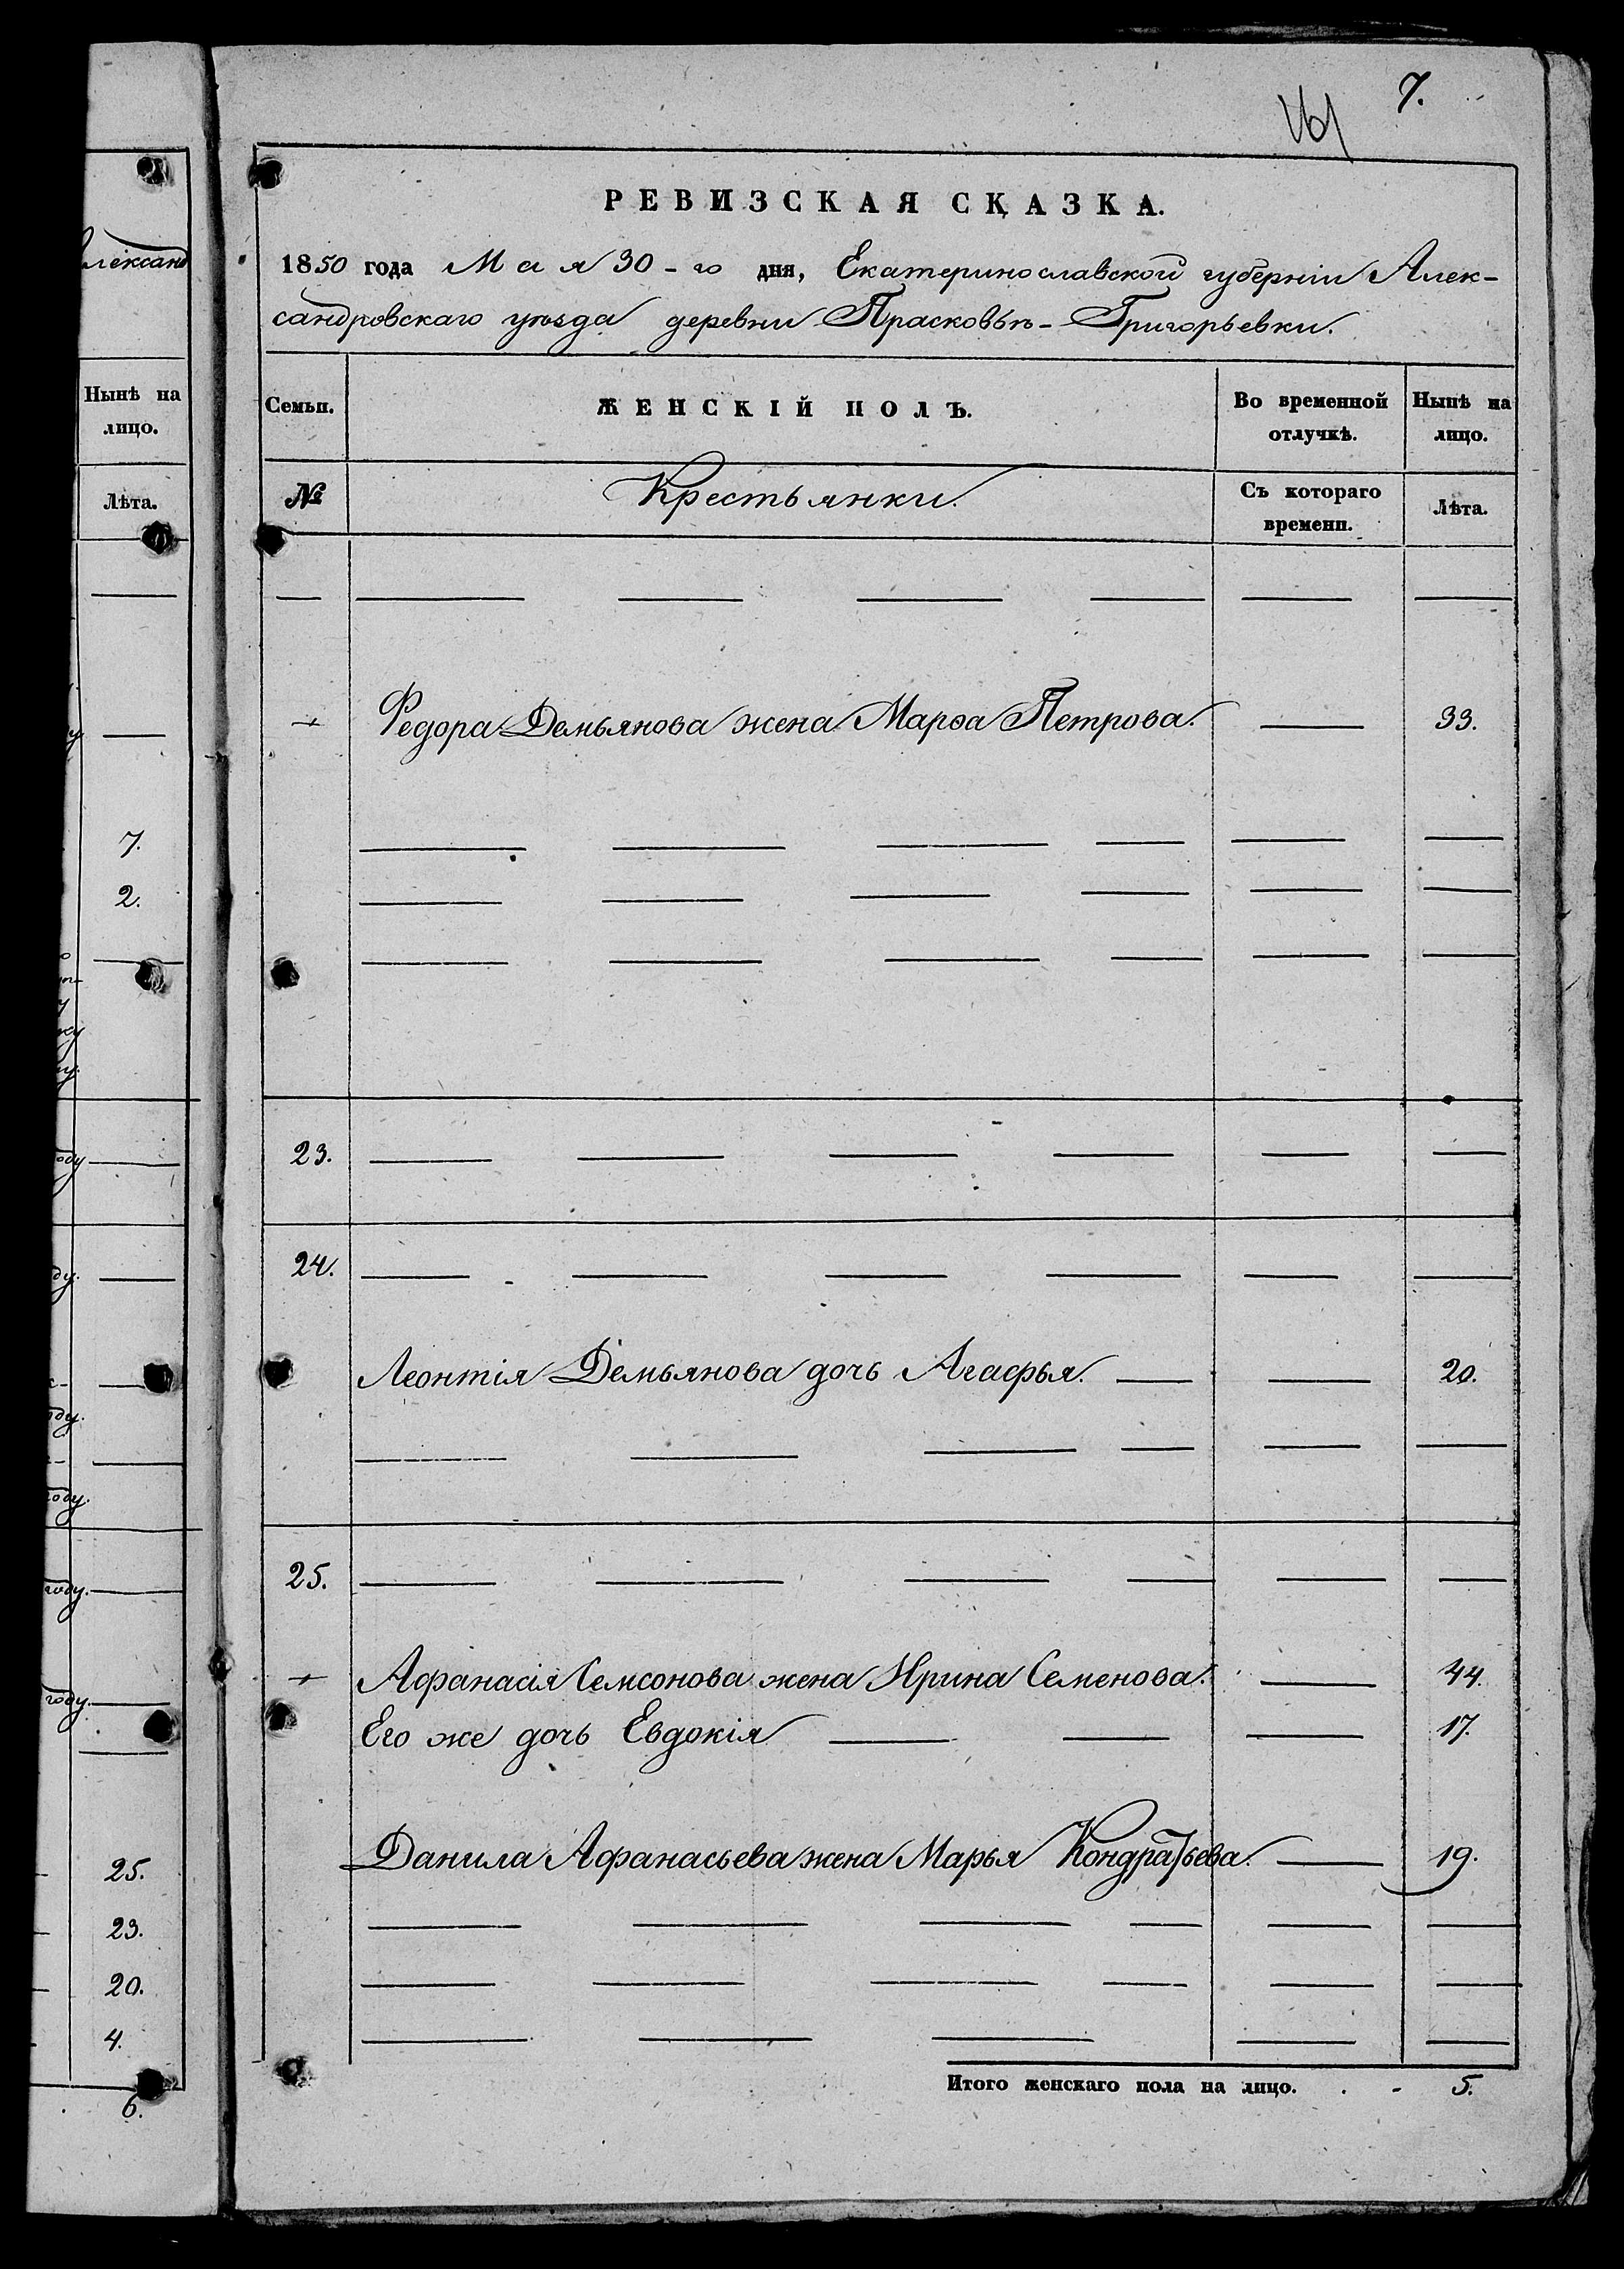 7.
161
РЕВИЗСКАЯ СКАЗКА.
1850 года Мая 30-го дня, Екатеринославской губерніи Алек-
сандровскаго уѣзда деревни Прасковѣе-Григорьевки.
Семьи. ЖЕНСКІЙ ПОЛЪ. Во временной отлучкѣ. Нынѣ на лицо.
№ Крестьянки. Съ котораго времени. Лѣта.
Федора Демьянова жена Марѳа Петрова. 33.
23.
24.
Леонтія Демьянова дочь Агафья. 20.
25.
Афанасія Семсонова жена Ирина Семенова. 44.
Его же дочь Евдокія 17.
Данила Афанасьева жена Марья Кондратьева. 19.
Итого женскаго пола на лицо. 5.
Александ
Нынѣ на
лицо.
Лѣта.
7.
2.
году
году.
году.
году.
году.
25.
23.
20.
4.
6.